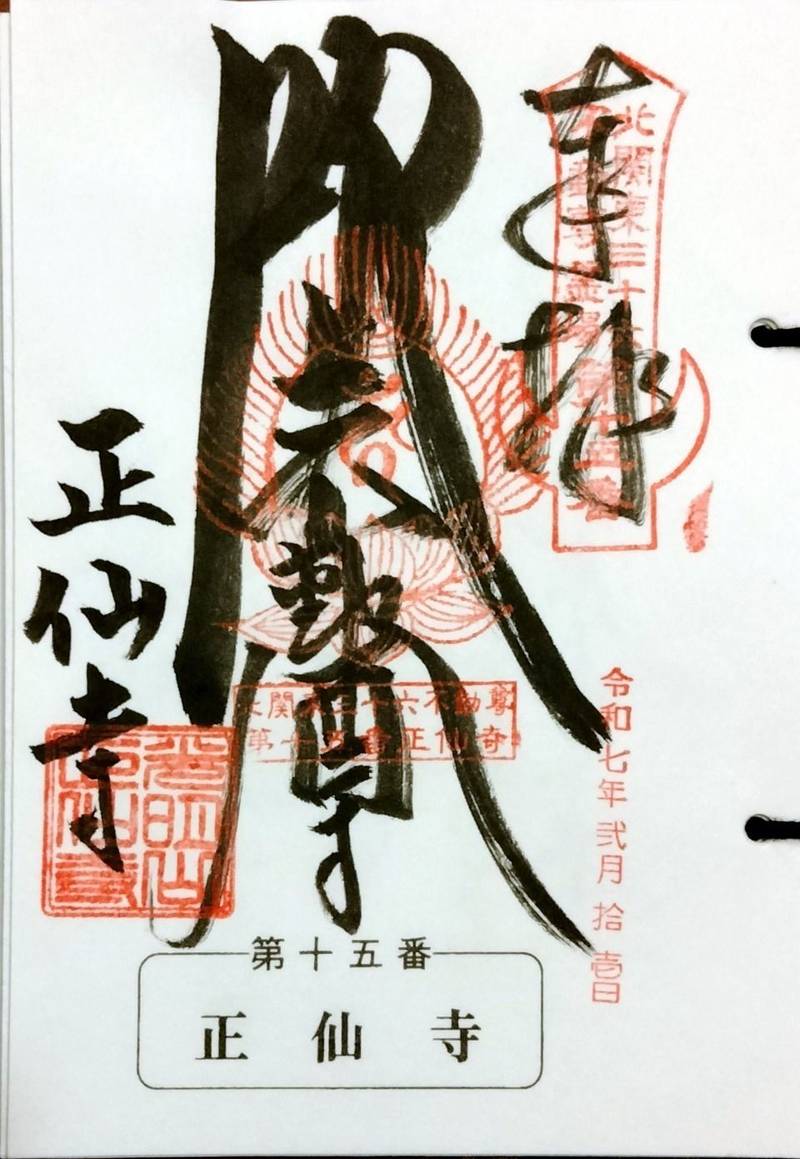 奉拝
北関東三十六
不動尊霊場第十五番
令和七年 弐月 拾壱日
不動尊
北関東三十六不動尊
第十五番正仙寺
正仙寺
第十五番
正仙寺